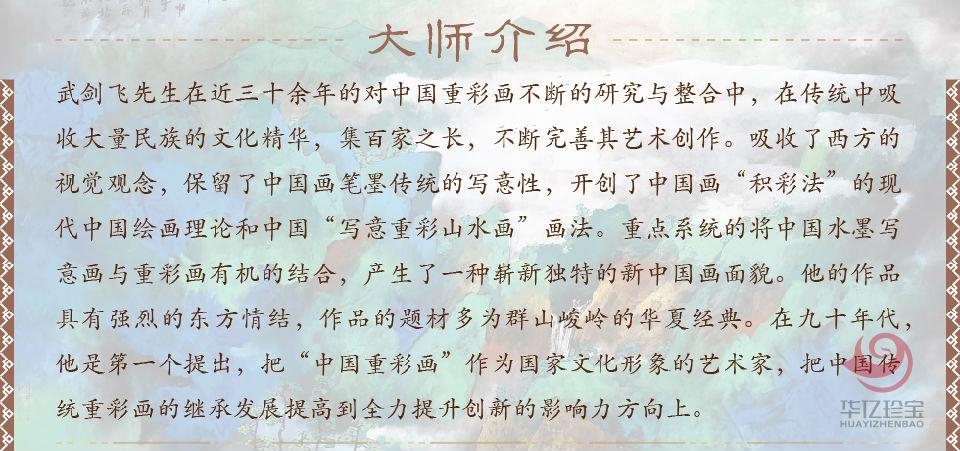 大师介绍
武剑飞先生在近三十余年的对中国重彩画不断的研究与整合中，在传统中吸
收大量民族的文化精华，集百家之长，不断完善其艺术创作。吸收了西方的
视觉观念，保留了中国画笔墨传统的写意性，开创了中国画“积彩法”的现
代中国绘画理论和中国“写意重彩山水画”画法。重点系统的将中国水墨写
意画与重彩画有机的结合，产生了一种崭新独特的新中国画面貌。他的作品
具有强烈的东方情结，作品的题材多为群山峻岭的华夏经典。在九十年代，
他是第一个提出，把“中国重彩画”作为国家文化形象的艺术家，把中国传
统重彩画的继承发展提高到全力提升创新的影响力方向上。
华亿珍宝
HUAYIZHENBAO